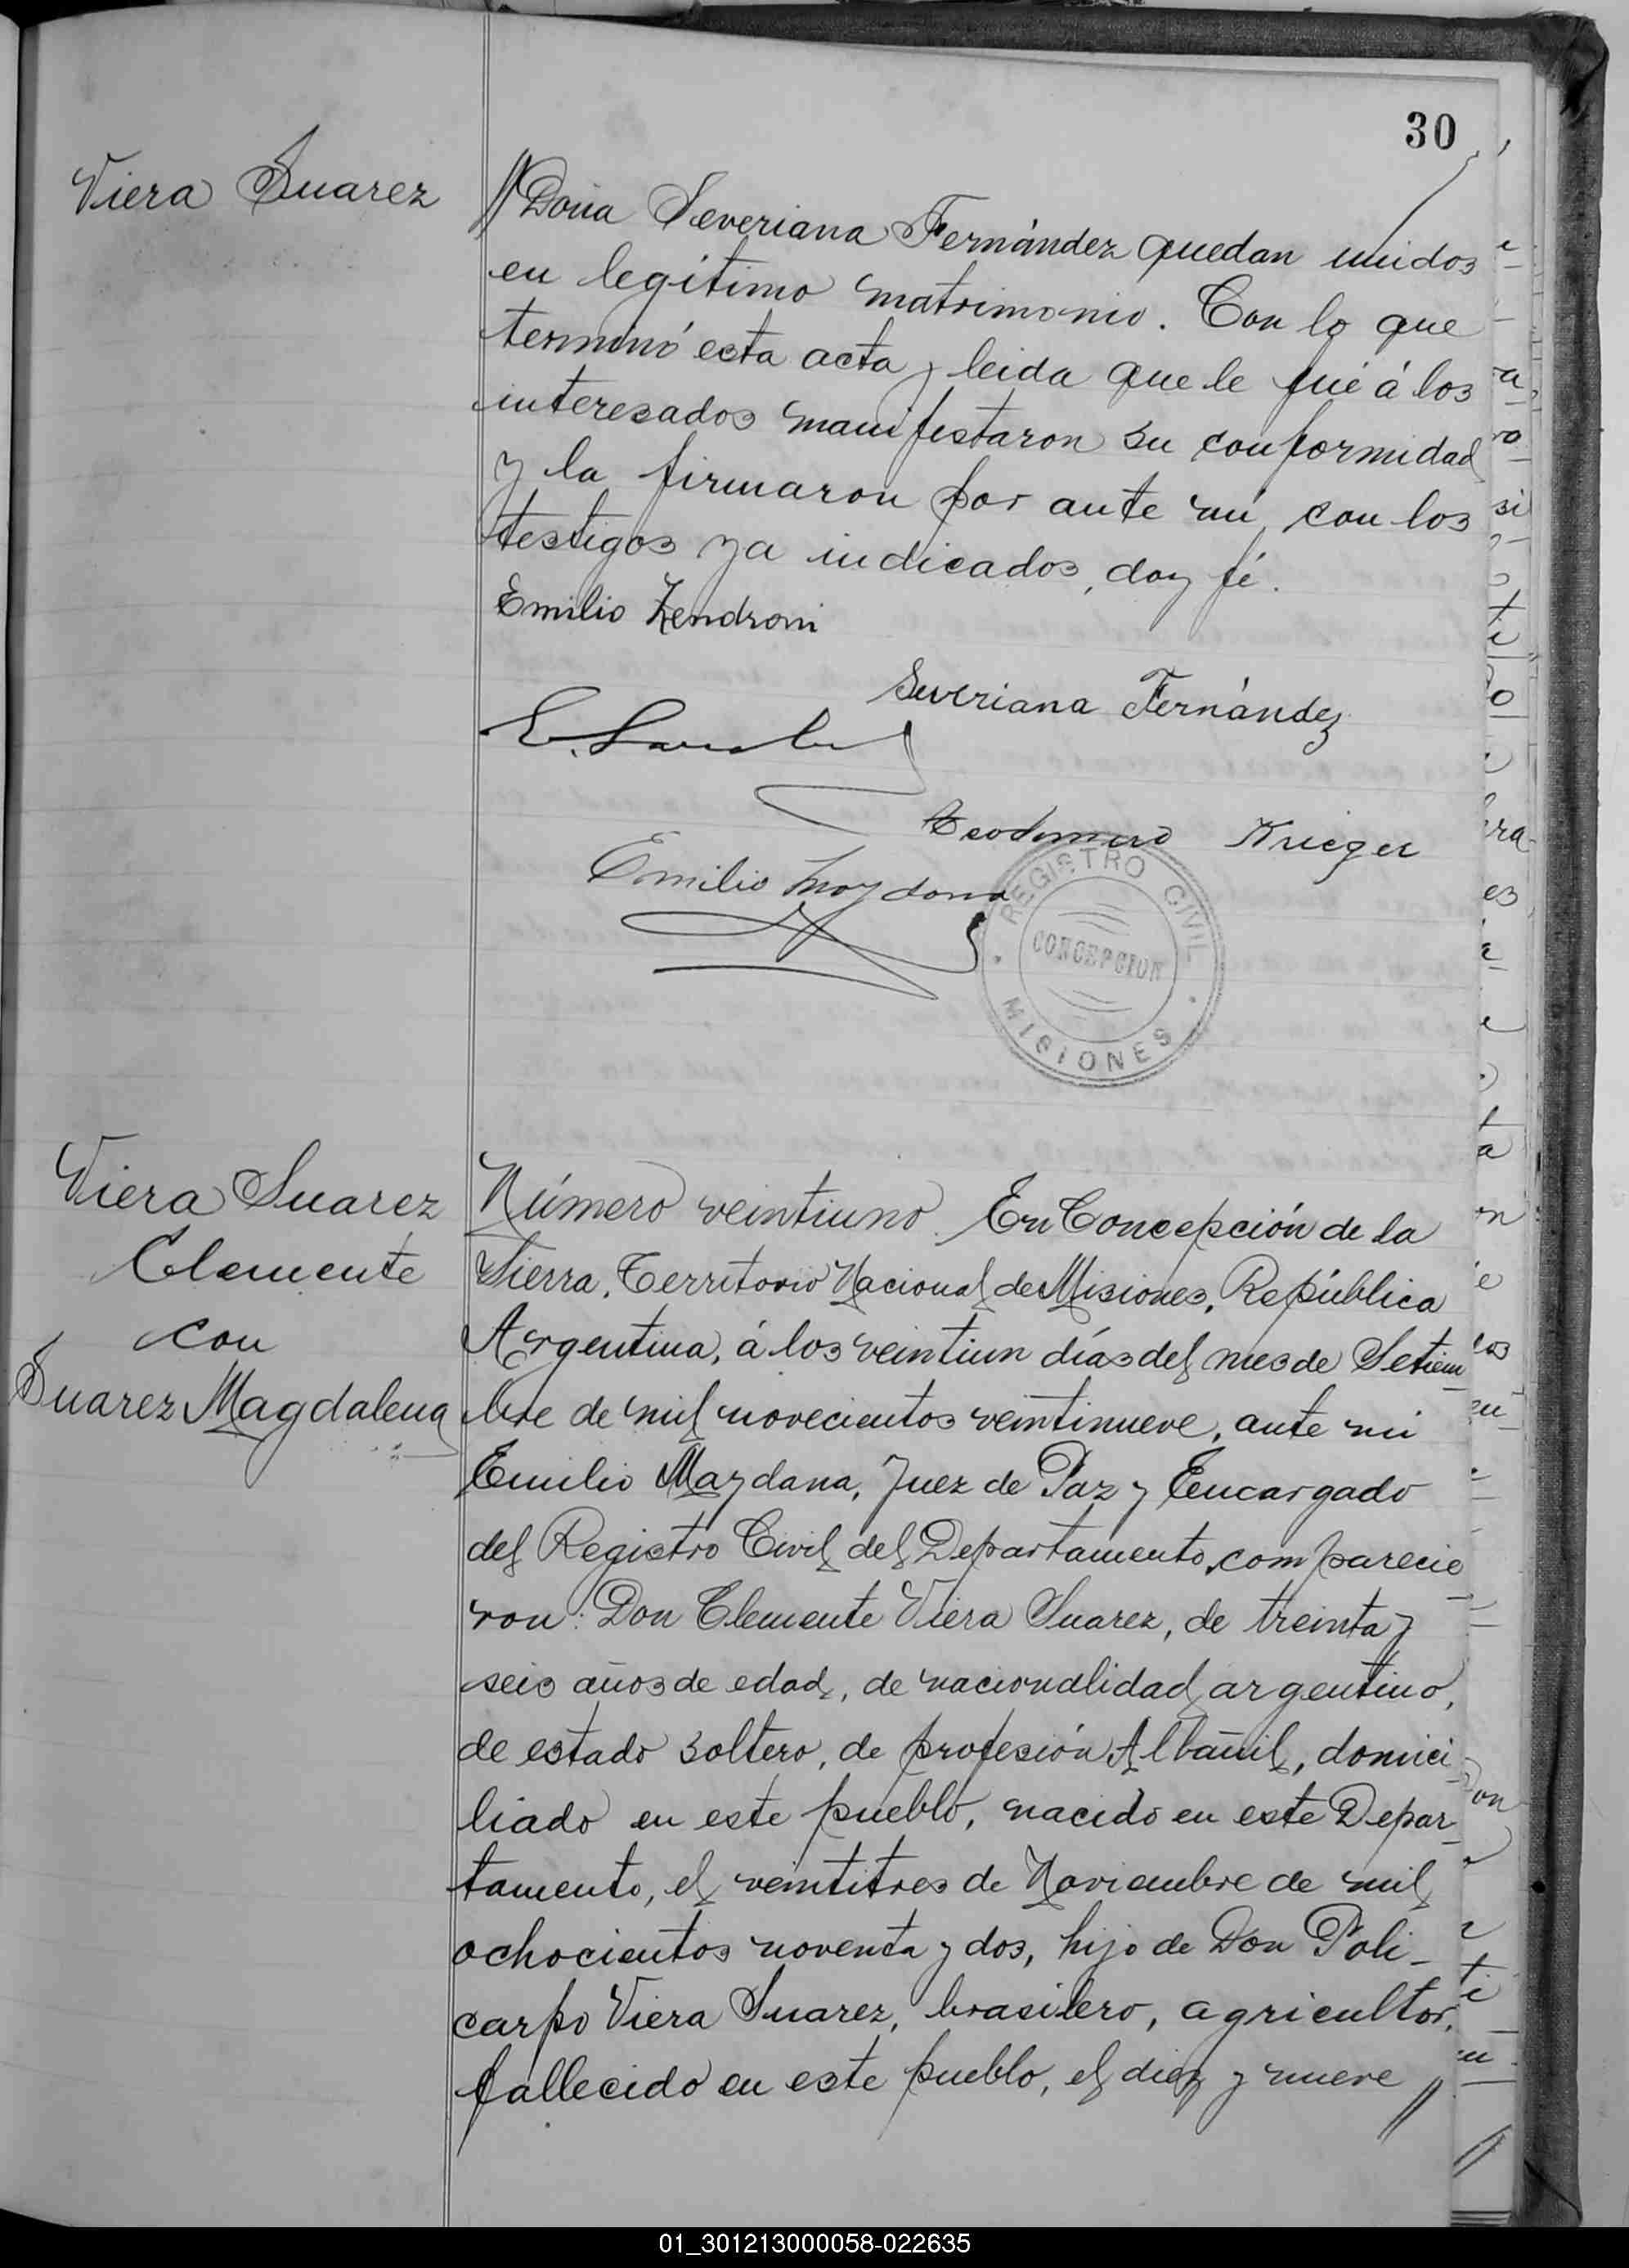 30
Viera Suarez
//Doña Severiana Fernández quedan unidos
en legítimo matrimonio. Con lo que
terminó esta acta y leida que le fué á los
interesados manifestaron su conformidad
y la firmaron por ante mí, con los
testigos ya indicados, doy fé.
Emilio Zendroni
Severiana Fernández
Teodomiro Krieger
Emilio Maydana
REGISTRO CIVIL
CONCEPCION
MISIONES
Viera Suarez
Clemente
con
Suarez Magdalena
Número veintiuno. En Concepción de la
Sierra, Territorio Nacional de Misiones, República
Argentina, á los veintiun días del mes de Setiem
bre de mil novecientos veintinueve, ante mi
Emilio Maydana, Juez de Paz y Encargado
del Registro Civil del Departamento, comparecie
ron: Don Clemente Viera Suarez, de treinta y
seis años de edad, de nacionalidad argentino,
de estado soltero, de profesión Albañil, domici
liado en este pueblo, nacido en este Depar
tamento, el veintitres de Noviembre de mil
ochocientos noventa y dos, hijo de Don Poli-
carpo Viera Suarez, brasilero, agricultor,
fallecido en este pueblo, el diez y nueve //
01_301213000058-022635